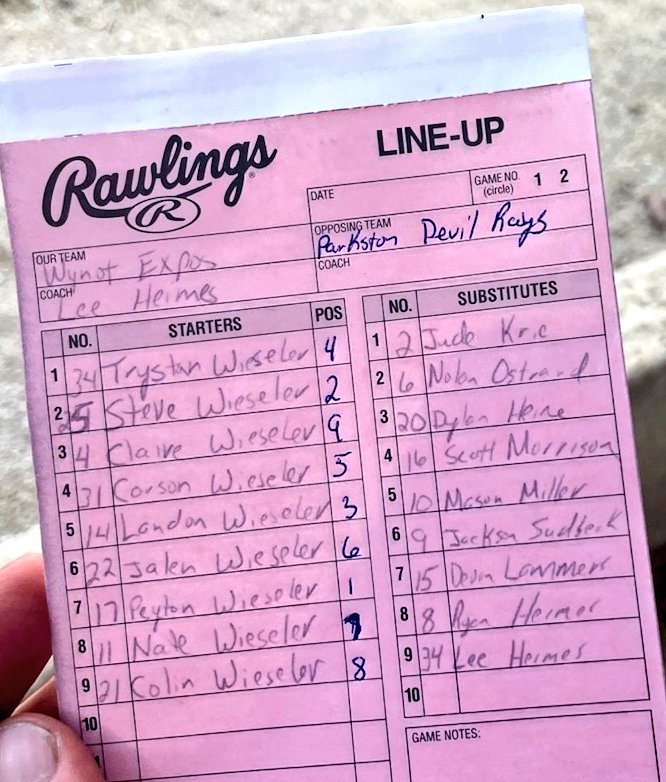 Rawlings ®
R
LINE-UP
DATE
GAME NO. (circle) 1 2
OUR TEAM Wynot Expos
OPPOSING TEAM Parkston Devil Rays
COACH Lee Heimes
COACH
NO. STARTERS POS
1 34 Trystan Wieseler 4
2 Steve Wieseler 2
3 4 Claire Wieseler 9
4 31 Corson Wieseler 5
5 14 Landon Wieseler 3
6 22 Jalen Wieseler 6
7 17 Peyton Wieseler 1
8 11 Nate Wieseler
9 21 Colin Wieseler 8
10
NO. SUBSTITUTES
1 2 Jude
2 6 Nolan
3 20 Dylan Heine
4 16 Scott Morrison
5 10 Mason Miller
6 9 Jackson Sudbeck
7 15 Devin Lammers
8 8 Ryan Heimes
9 34 Lee Heimes
10
GAME NOTES: